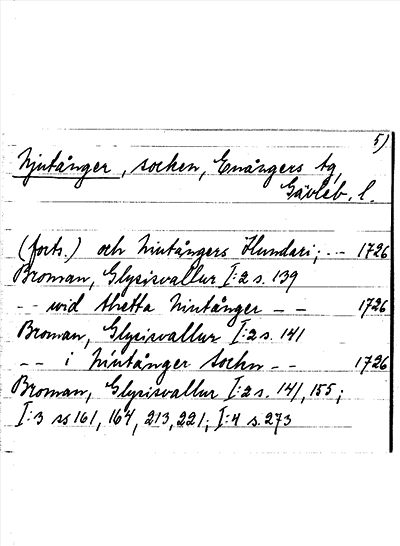 5)
Njutånger, socken, Enångers tg,
Gävleb. l.
(forts.) och Niutångers Hundari; -- 1726
Broman, Glysisvallur I:2 s. 139
-- wid thetta Niutånger -- 1726
Broman, Glysisvallur I:2 s. 141
-- i Niutånger Sochn -- 1726
Broman, Glysisvallur I:2 s. 141, 155;
I:3 ss 161, 164, 213, 221; I:4 s. 273